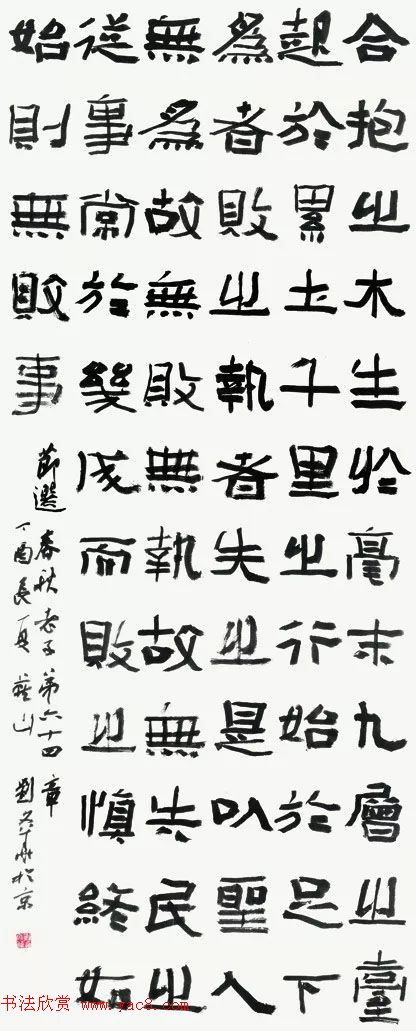 合抱之木生於毫末九層之臺
起於累土千里之行始於足下
爲者敗之執者失之是以聖人
無爲故無敗無執故無失民之
從事常於幾成而敗之慎終如
始則無敗事
節選春秋老子第六十四章
丁酉長夏 山 劉 於京
书法欣赏 www.yac8.com